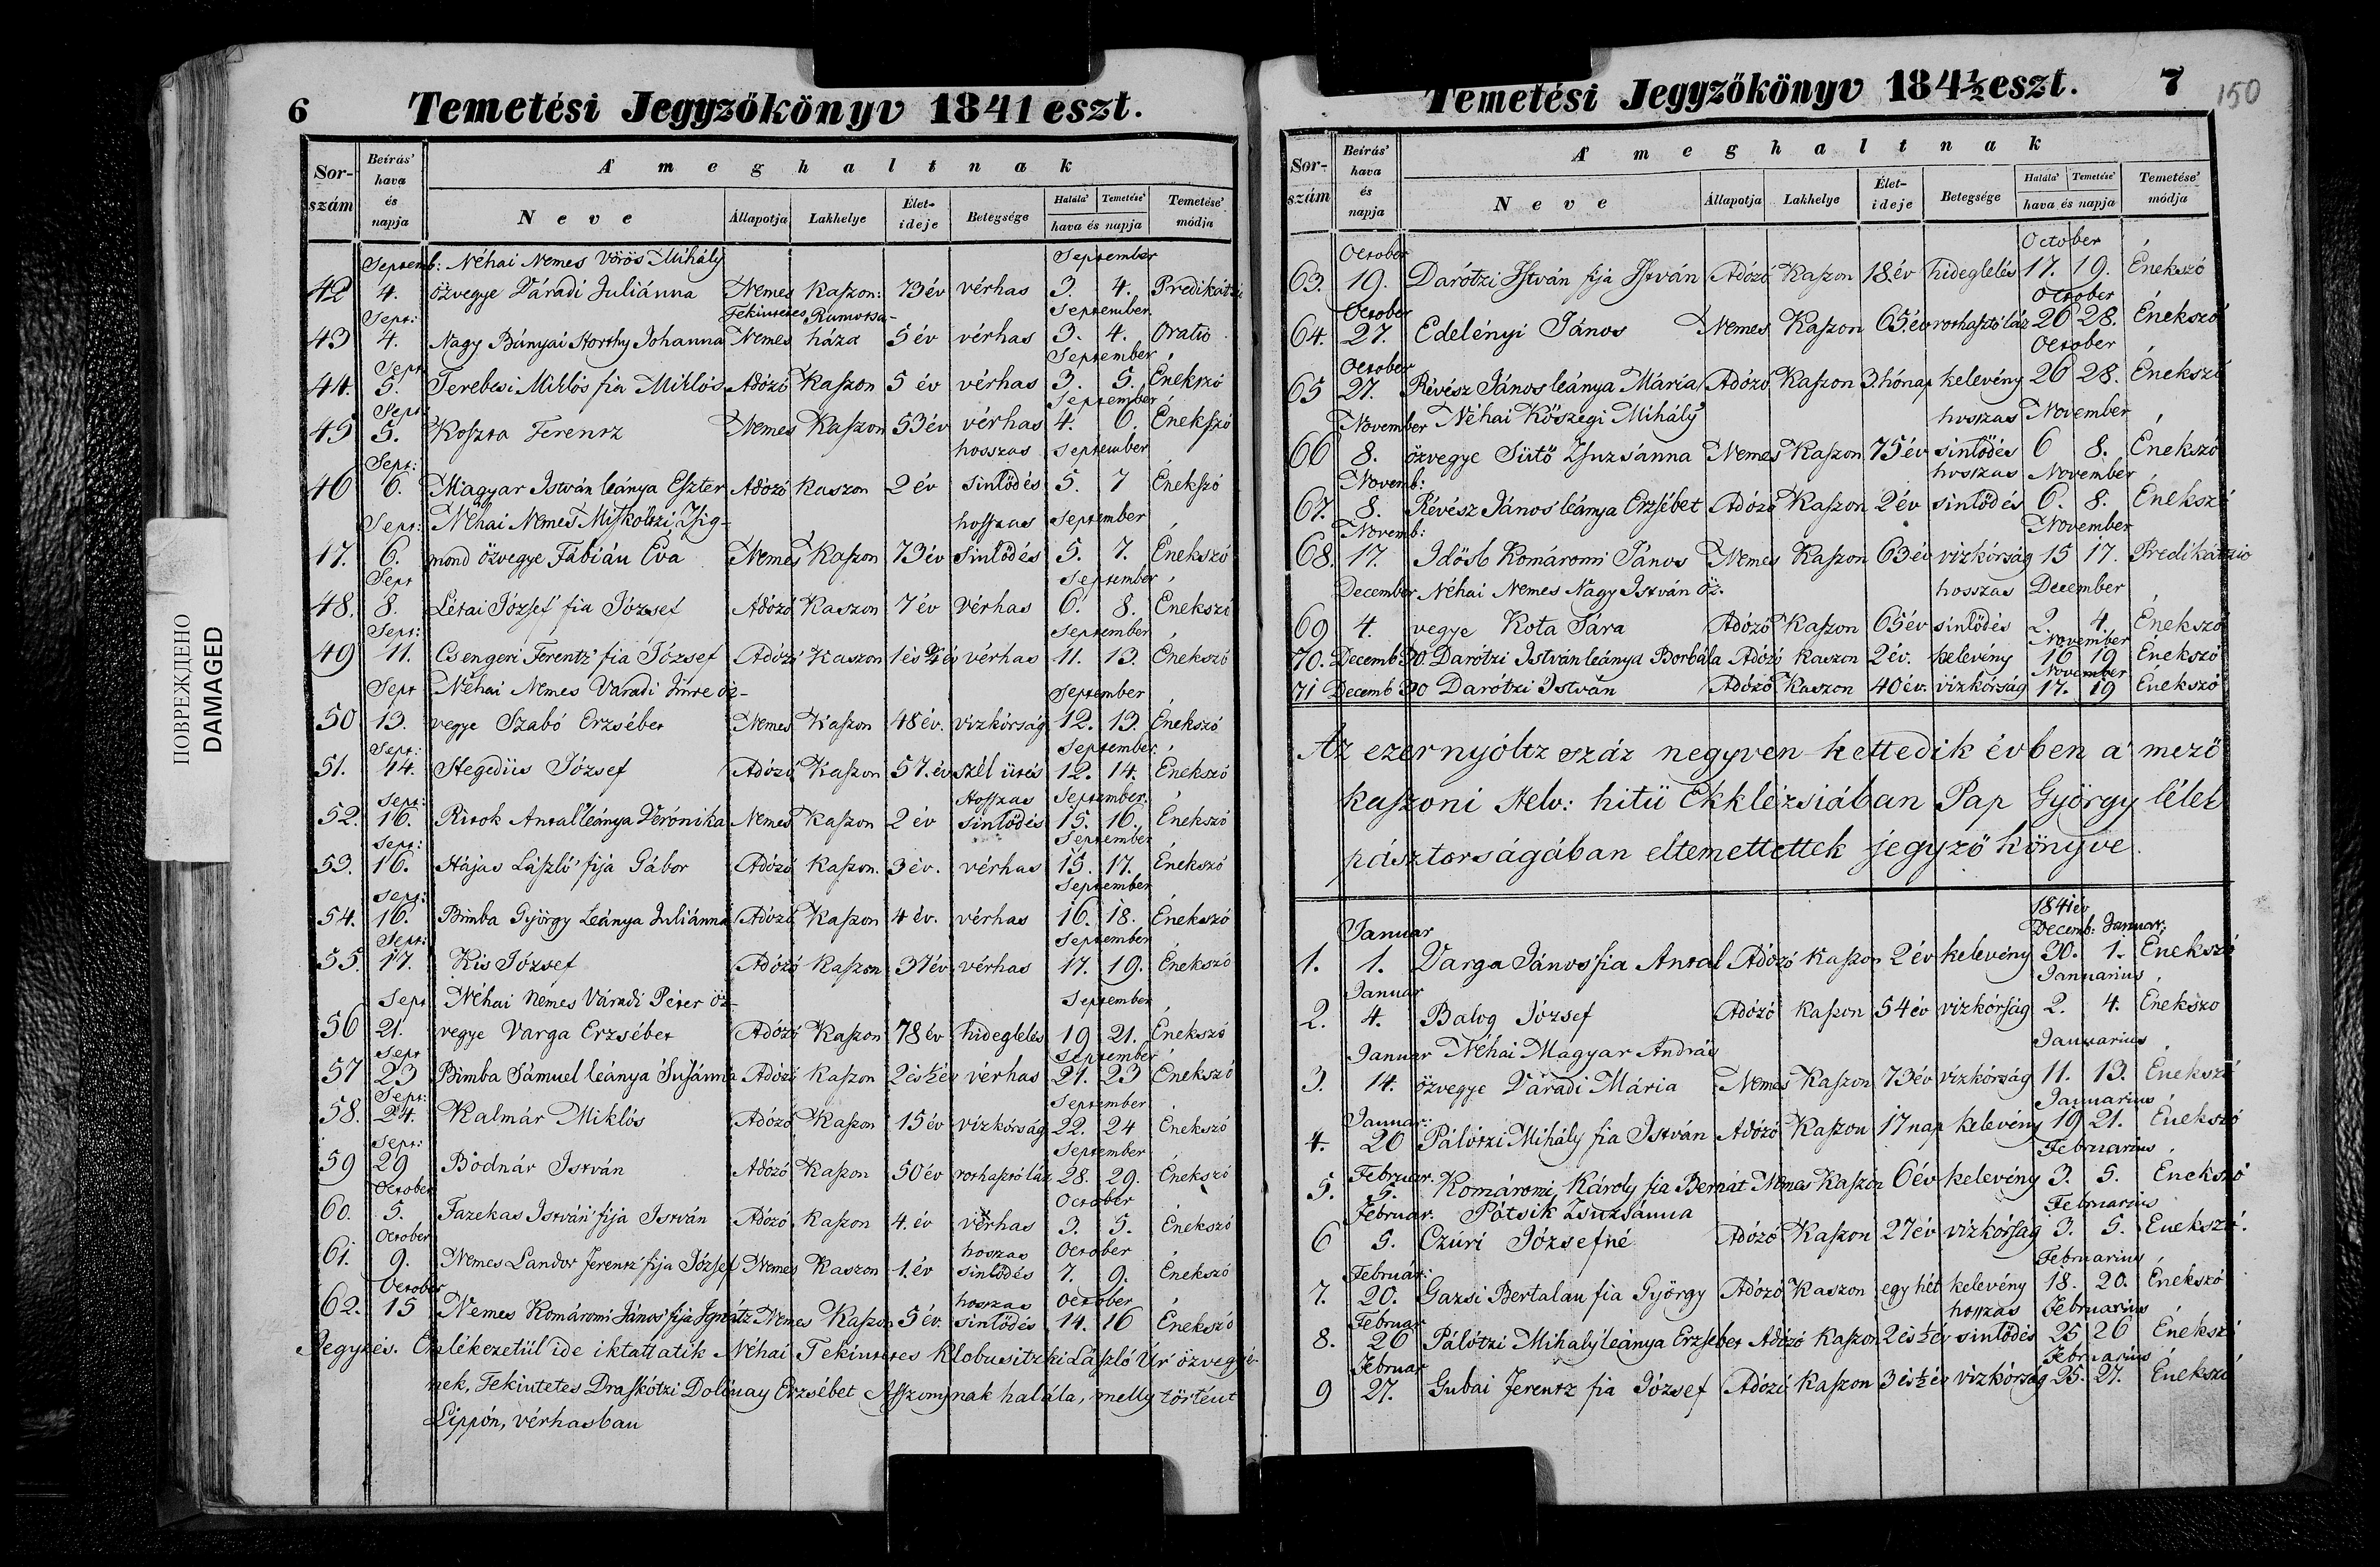 ПОВРЕЖДЕНО
DAMAGED
6 Temetési Jegyzőkönyv 1841 eszt.
Sor-szám Beírás' hava és napja A' meghaltnak
Neve Állapotja Lakhelye Élet-ideje Betegsége Halála' Temetése' hava és napja Temetése' módja
Septemb: Néhai Nemes Vörös Mihály September
42 4. özvegye Váradi Juliánna Nemes Kaszon: 73 év vérhas 3. 4. Predikátzi
Sept: Tekintetes Ramotsa- September
43 4. Nagy Bányai Horthy Johanna Nemes háza 5 év vérhas 3. 4. Oratio
Sept. September
44. 5. Terebesi Miklós fia Miklós Adózó Kaszon 5 év vérhas 3. 5. Énekszó
Sept. September
45 5. Koszta Ferentz Nemes Kaszon 53 év vérhas 4. 6. Énekszó
Sept: hosszas September
46 6. Magyar István leánya Eszter Adózó Kaszon 2 év sinlődés 5. 7 Énekszó
Sept: Néhai Nemes Miskóltzi Zsig- hosszas September
47. 6. mond özvegye Fábián Éva Nemes Kaszon 73 év Sinlődés 5. 7. Énekszó
Sept September
48. 8. Létai József fia József Adózó Kaszon 7 év vérhas 6. 8. Énekszó
Sept: September
49 11. Csengeri Ferentz fia József Adózó Kaszon 1 és 2/4 év vérhas 11. 13. Énekszó
Sept Néhai Nemes Váradi Imre öz- September
50 13. vegye Szabó Erzsébet Nemes Kaszon 48 év. vizkórság 12. 13. Énekszó
Sept: September
51. 14. Hegedüs József Adózó Kaszon 57. év szél ütés 12. 14. Énekszó
Sept: Hosszas September.
52. 16. Ritok Antal leánya Verónika Nemes Kaszon 2 év sinlődés 15. 16. Énekszó
Sept: September
53. 16. Hájas László fija Gábor Adózó Kaszon. 3 év. vérhas 15. 17. Énekszó
Sept: September
54. 16. Bimba György Leánya Juliánna Adózó Kaszon 4 év. vérhas 16. 18. Énekszó
Sept: September
55. 17. Kis József Adózó Kaszon 37 év vérhas 17. 19. Énekszó
Sept Néhai Nemes Váradi Péter öz- September
56 21. vegye Varga Erzsébet Adózó Kaszon 78 év hideglelés 19 21. Énekszó
Sept September
57 23 Bimba Sámuel leánya Susánna Adózó Kaszon 2 és ½ év vérhas 21. 23 Énekszó
Sept: September
58. 24. Kalmár Miklós Adózó Kaszon 15 év vízkórság 22. 24 Énekszó
Sept: September
59 29 Bodnár István Adózó Kaszon 50 év rothasztó láz 28. 29. Énekszó
October October
60. 5. Fazekas István fija István Adózó Kaszon 4. év vérhas 3. 5. Énekszó
October hoszas October
61. 9. Nemes Landor Ferentz fija József Nemes Kaszon 1. év sinlődés 7. 9. Énekszó
October hosszas October
62. 15 Nemes Komáromi János fija Ignátz Nemes Kaszon 5 év. sinlődés 14. 16 Énekszó
Jegyzés. Emlékezetül ide iktattatik Néhai Tekintetes Klobusitzki László Úr özvegyé-
nek, Tekintetes Draskótzi Dolinay Erzsébet Asszonynak halála, melly történt
Lippón, vérhasban
Temetési Jegyzőkönyv 184½ eszt. 7 150
Sor-szám Beírás' hava és napja A' meghaltnak
Neve Állapotja Lakhelye Élet-ideje Betegsége Halála' Temetése' hava és napja Temetése' módja
October October
63. 19. Darótzi István fija István Adózó Kaszon 18. év hideglelés 17. 19. Énekszó
October October
64. 27. Edelényi János Nemes Kaszon 65 év rothasztó láz 26 28. Énekszó
October October
65 27. Révész János leánya Mária Adózó Kaszon 3. hónap kelevény 26 28. Énekszó
November Néhai Kőszegi Mihály hosszas November
66 8. özvegye Sütő Zsuzsánna Nemes Kaszon 75 év sinlődés 6 8. Énekszó
Novemb: hosszas November
67. 8. Révész János leánya Erzsébet Adózó Kaszon 2 év sinlődés 6. 8. Énekszó
Novemb: November
68. 17. Idősb Komáromi János Nemes Kaszon 63 év vizkórság 15 17. Predikátzio
December Néhai Nemes Nagy István öz. hosszas December
69 4. vegye Kota Sára Adózó Kaszon 65 év sinlődés 2. 4. Énekszó
November
70. Decemb 30. Darótzi István leánya Borbála Adózó Kaszon 2 év. kelevény 16 19 Énekszó
November
71 Decemb 30 Darótzi István Adózó Kaszon 40 év. vízkórság 17. 19 Énekszó
Az ezernyóltz száz negyven kettedik évben a' mező
kaszoni Helv: hitü Ekklézsiában Pap György lélek
pásztorságában eltemettettek jegyző könyve.
1841 év
Januar Decemb: Januar:
1. 1. Varga János fia Antal Adózó Kaszon 2 év kelevény 30. 1. Énekszó
Januar Januarius
2. 4. Balog József Adózó Kaszon 54 év vízkórság 2. 4. Énekszo
Januar Néhai Magyar András Januarius
3. 14. özvegye Váradi Mária Nemes Kaszon 73 év vízkórság 11. 13. Énekszó
Januar: Januarius
4. 20 Pálótzi Mihály fia István Adózó Kaszon 17 nap kelevény 19 21. Énekszó
Februar. Februarius
5. 5. Komáromi Károly fia Bernát Nemes Kaszon 6 év kelevény 3. 5. Énekszó
Februar. Pótsik Zsuzsánna Februarius
6 5. Czúri Józsefné Adózó Kaszon 27 év vízkórság 3. 5. Énekszó.
Február: Februarius
7. 20. Gazsi Bertalan fia György Adózó Kaszon egy hét kelevény 18. 20. Énekszó
Februar hosszas Februarius
8. 26 Pálótzi Mihály leánya Erzsébet Adózó Kaszon 2 és ½ év sinlődés 25 26 Énekszó
Februar Februarius
9 27. Gubai Ferentz fia József Adózó Kaszon 3 és ½ év vizkórság 25. 27. Énekszó